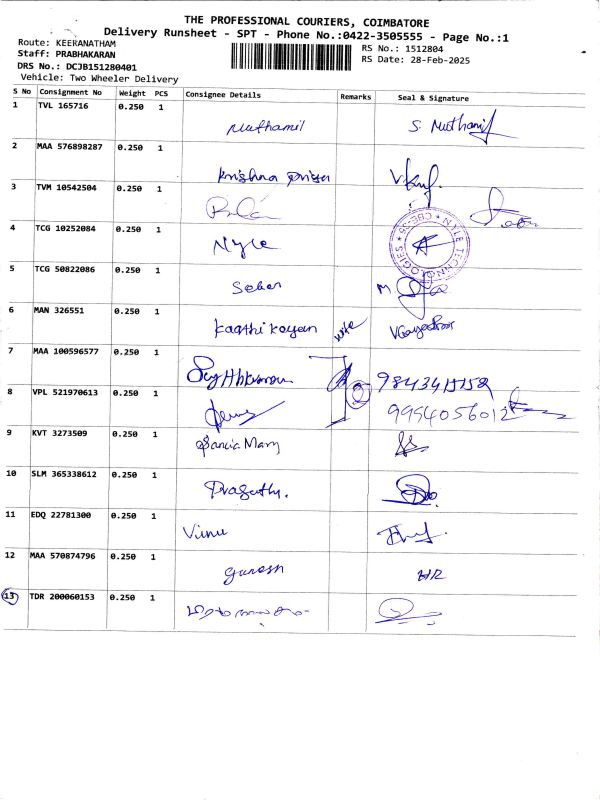 THE PROFESSIONAL COURIERS, COIMBATORE
Delivery Runsheet - SPT - Phone No.:0422-3505555 - Page No.:1
Route: KEERANATHAM
RS No.: 1512804
Staff: PRABHAKARAN
RS Date: 28-Feb-2025
DRS No.: DCJB151280401
Vehicle: Two Wheeler Delivery
S No Consignment No Weight PCS Consignee Details Remarks Seal & Signature
1 TVL 165716 0.250 1
Muthamil S. Muthamil
2 MAA 576898287 0.250 1
Krishna Priya
3 TVM 10542504 0.250 1
4 TCG 10252084 0.250 1
Nyle NYLE TECHNOLOGIES
5 TCG 50822086 0.250 1
6 MAN 326551 0.250 1
Kaathikayan wife
7 MAA 100596577 0.250 1
8 VPL 521970613 0.250 1
9954056012
9 KVT 3273509 0.250 1
Sancia Mary
10 SLM 365338612 0.250 1
11 EDQ 22781300 0.250 1
12 MAA 570874796 0.250 1
Ganesh
13 TDR 200060153 0.250 1